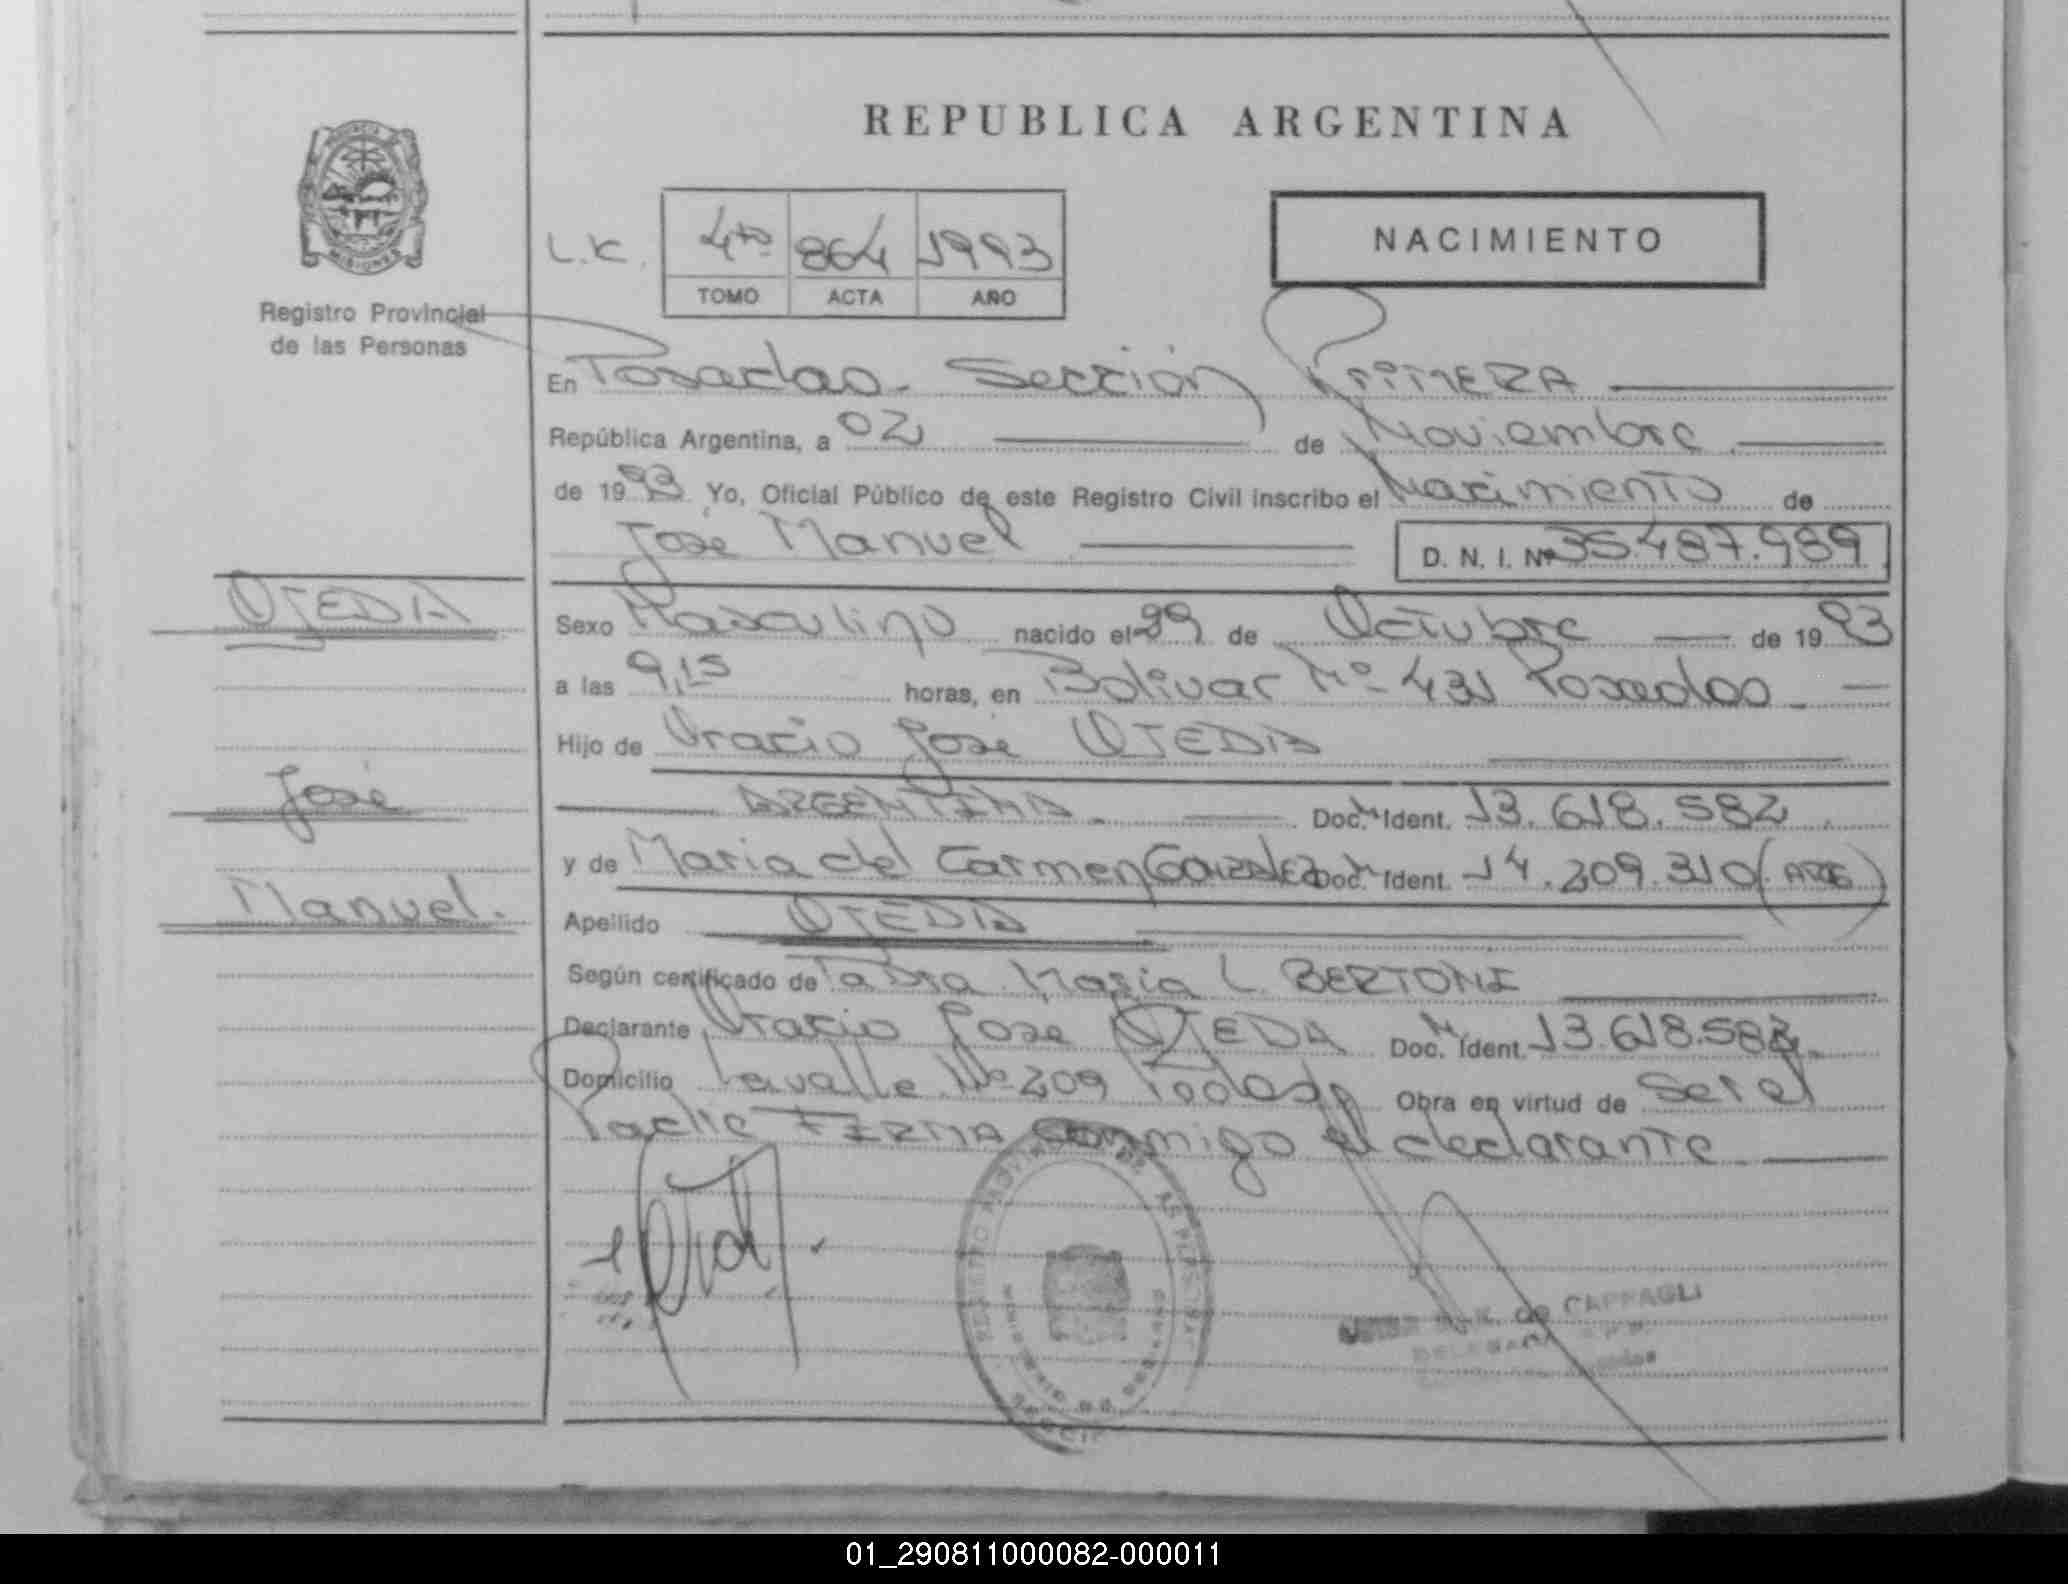 REPUBLICA ARGENTINA
PROVINCIA
MISIONES
Registro Provincial
de las Personas
L.K. 4to 864 1993
TOMO ACTA AÑO
NACIMIENTO
En Posadas - Sección PRIMERA
República Argentina, a 02 de Noviembre
de 1993 Yo, Oficial Público de este Registro Civil inscribo el Nacimiento de
José Manuel D. N. I. Nº 35.487.989
OJEDA
Sexo Masculino nacido el 29 de Octubre de 1993
a las 9,15 horas, en Bolivar Nº 431 Posadas
Hijo de Oracio José OJEDA
José
ARGENTINA. Doc. N Ident. 13.618.582
y de Maria del Carmen Gonzalez Doc. N Ident. 14.209.310 (ARG)
Manuel.
Apellido OJEDA
Según certificado de la Dra Maria L. BERTONI
Declarante Oracio Jose OJEDA Doc. N Ident. 13.618.582
Domicilio Lavalle Nº 209 Obra en virtud de Ser el
Padre FIRMA conmigo el declarante
de CAPPAGLI
DELEGADA
01_290811000082-000011